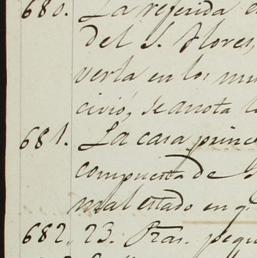 680. La referida
del S. Flores,
verla en los
civió, se anota
681. La casa princ
compuesta de
mal estado en
682. 23. Fras. pequ